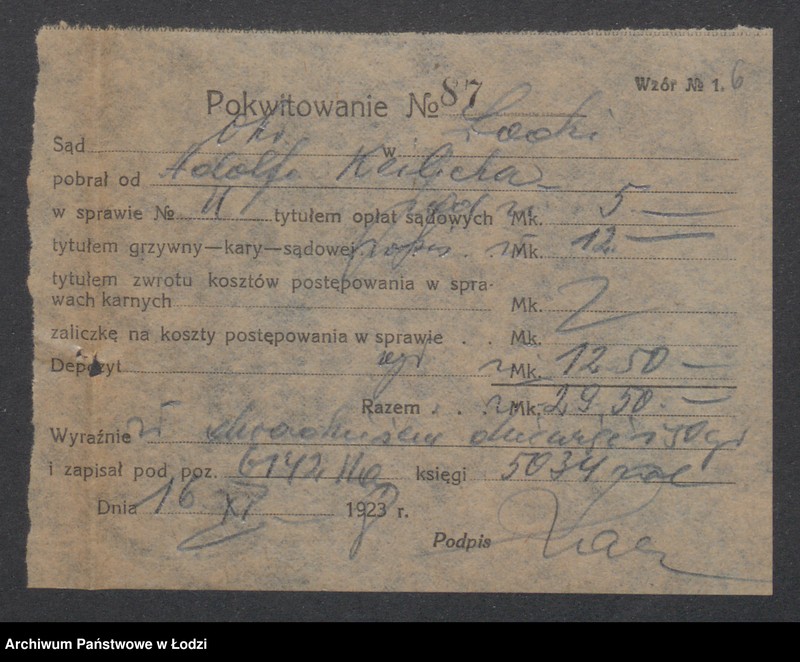 Wzór № 1. 6
Pokwitowanie № 87
Sąd Okr. w Łodzi
pobrał od Adolfa
w sprawie № tytułem opłat sądowych Mk. 5 —
tytułem grzywny—kary—sądowej Mk. 12. —
tytułem zwrotu kosztów postępowania w spra-
wach karnych Mk.
zaliczkę na koszty postępowania w sprawie . . Mk.
Depozyt Mk. 12 50 —
Razem . . . Mk. 29.50. —
Wyraźnie zł dwadzieścia dziewięć i 50 gr
i zapisał pod poz. 6142 księgi 5034
Dnia 16 XI 1923 r.
Podpis
Archiwum Państwowe w Łodzi